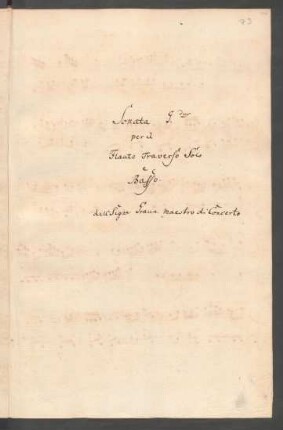 Sonata
per il
Flauto Traverso Solo
e
Basso
dell Sigre maestro di Concerto